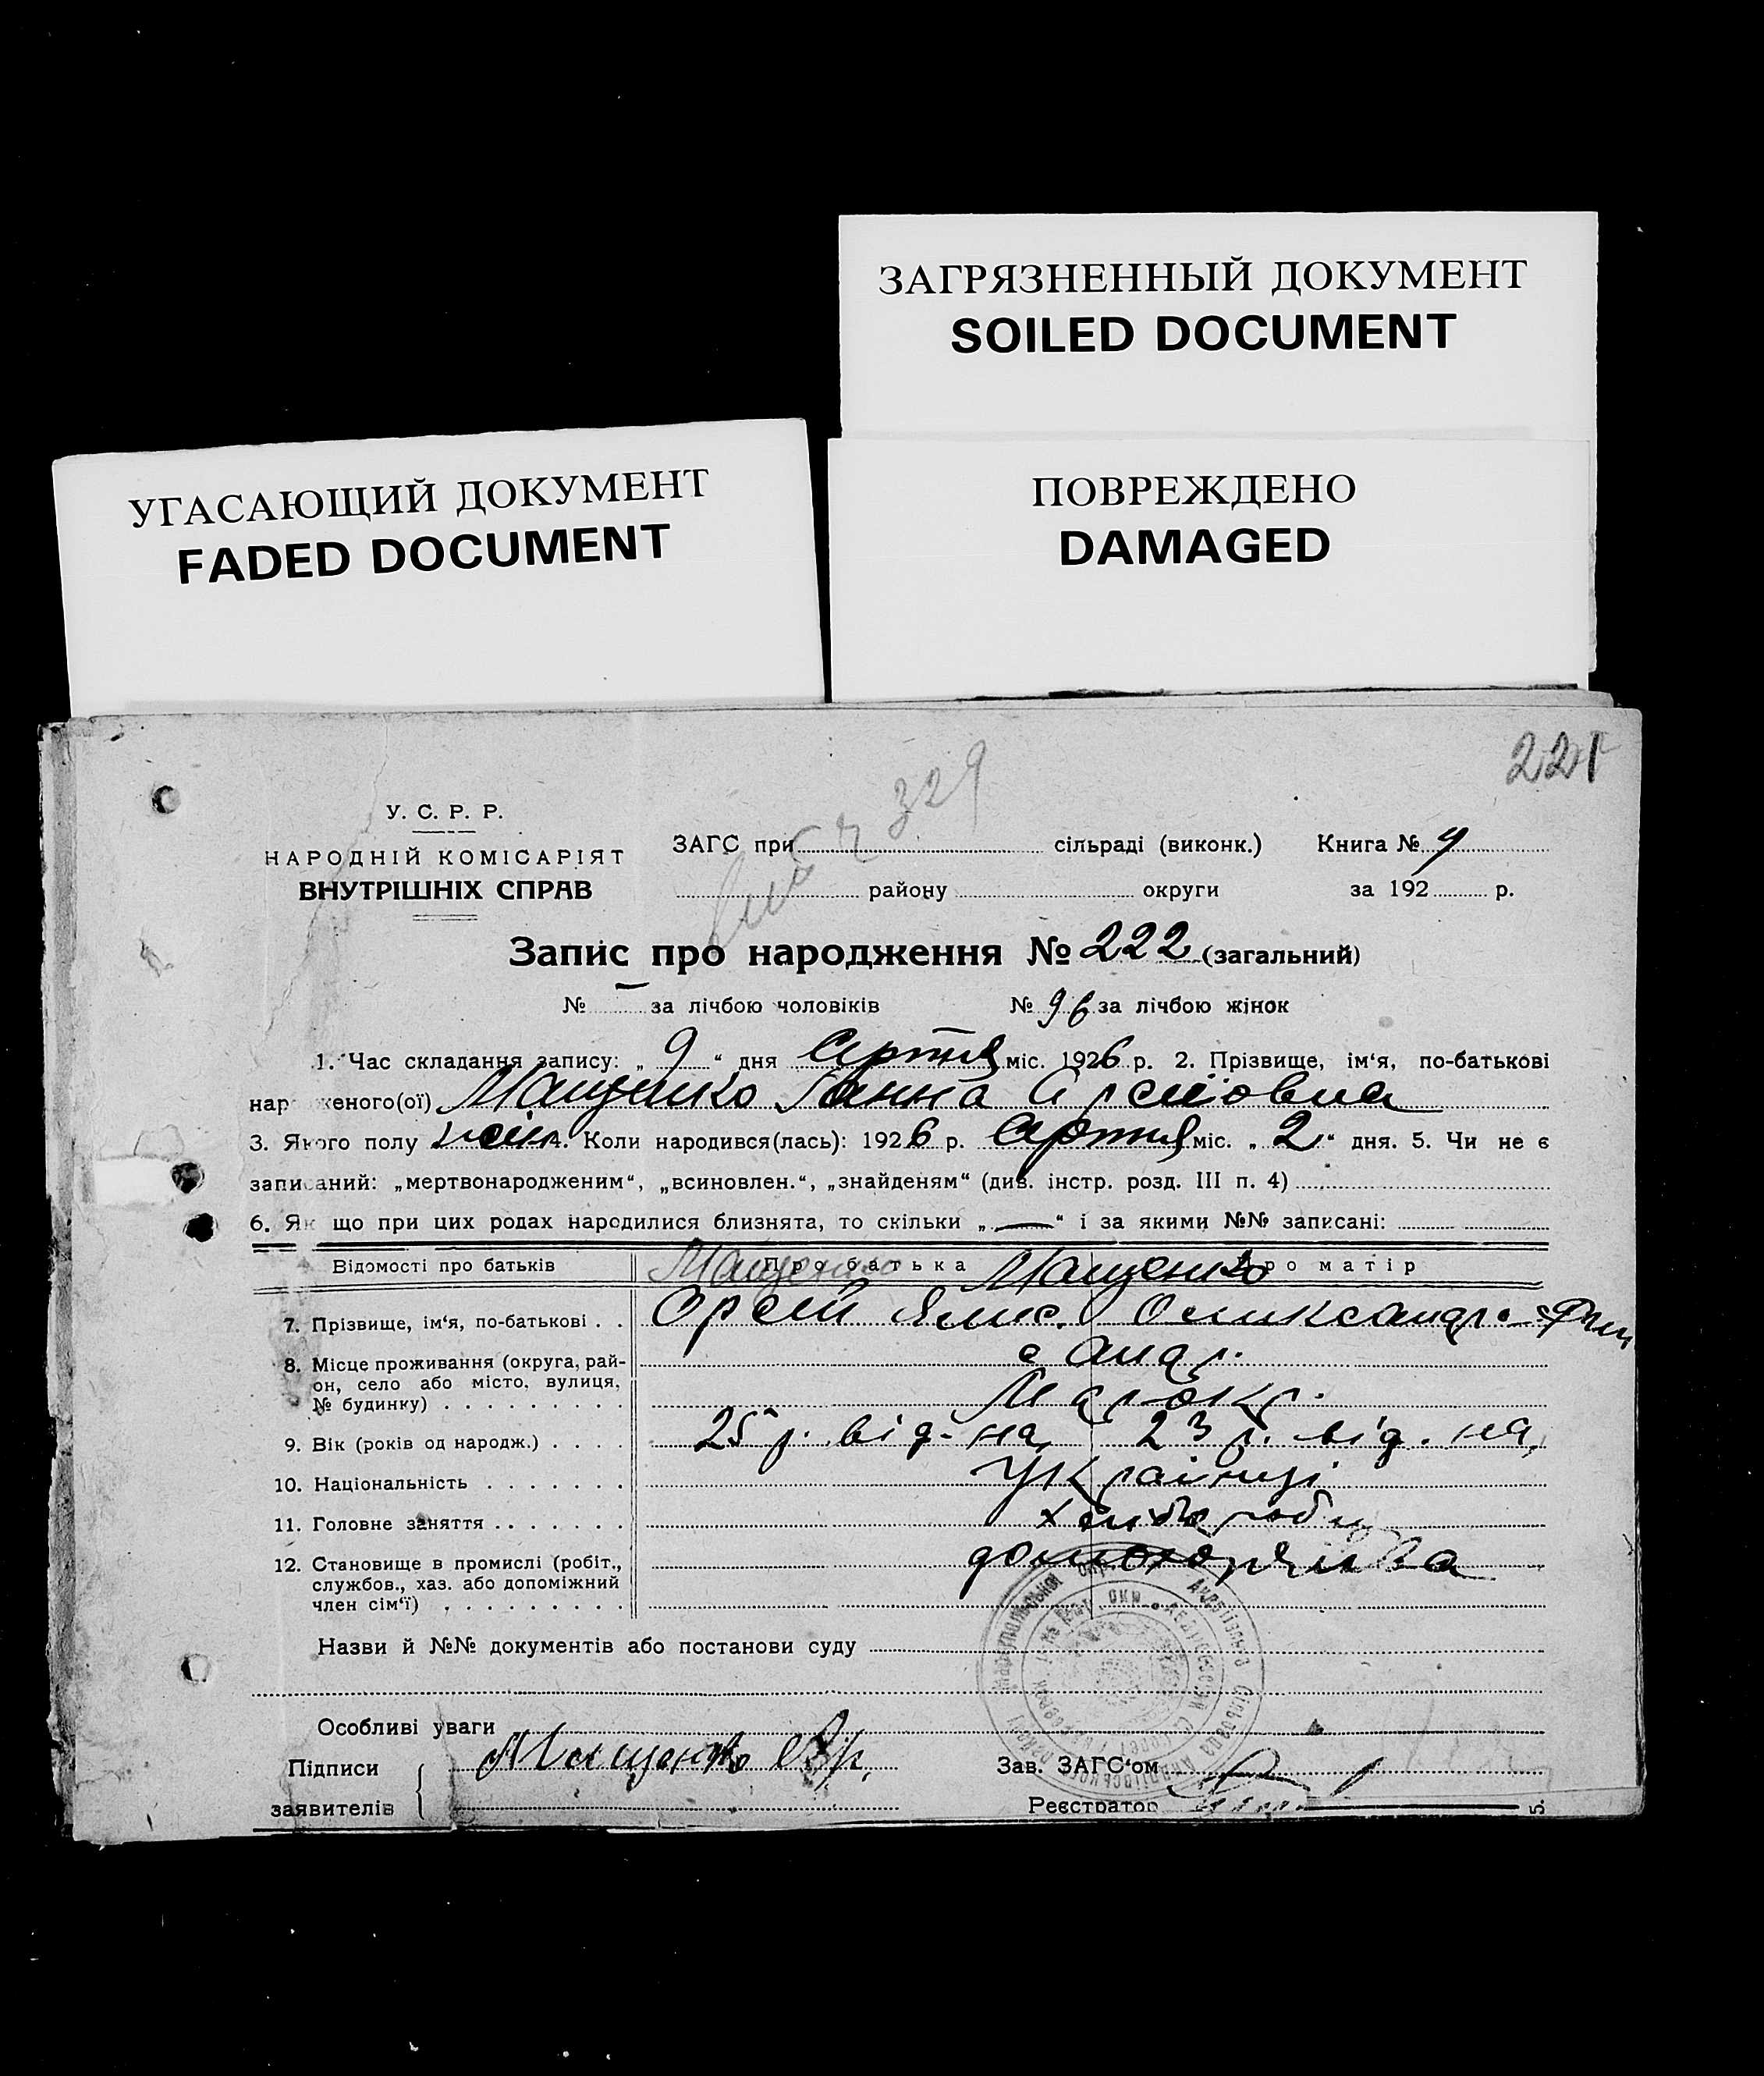 ЗАГРЯЗНЕННЫЙ ДОКУМЕНТ
SOILED DOCUMENT
УГАСАЮЩИЙ ДОКУМЕНТ
FADED DOCUMENT
ПОВРЕЖДЕНО
DAMAGED
221
329
У. С. Р. Р.
НАРОДНІЙ КОМІСАРІЯТ
ВНУТРІШНІХ СПРАВ
ЗАГС при сільраді (виконк.) Книга № 4
району округи за 192 р.
Запис про народження № 222 (загальний)
№ — за лічбою чоловіків № 96 за лічбою жінок
1. Час складання запису: „ 9 “ дня Серпня міс. 1926 р. 2. Прізвище, ім‘я, по-батькові
народженого(ої) Мащенко Ганна Арсеїовна
3. Якого полу жін 4. Коли народився(лась): 1926 р. Серпня міс. „ 2 “ дня. 5. Чи не є
записаний: „мертвонародженим“, „всиновлен.“, „знайденям“ (див. інстр. розд. III п. 4)
6. Як що при цих родах народилися близнята, то скільки „ — “ і за якими №№ записані:
Відомості про батьків Про батька Про матір
Мащенко Мащенко
7. Прізвище, ім‘я, по-батькові . .
8. Місце проживання (округа, рай- с Андр.
он, село або місто, вулиця,
№ будинку) . . . . . . . . . Мар окр.
9. Вік (років од народж.) . . . . 25 р. від. на, 23 р. від. на,
10. Національність . . . . . . . Українці
11. Головне заняття . . . . . . . хлібороби
12. Становище в промислі (робіт.,
службов., хаз. або допоміжний
член сім‘ї) . . . . . . . . .
Назви й №№ документів або постанови суду
Особливі уваги
Підписи Мащенко Ар.
заявителів
Зав. ЗАГС‘ом
Реєстратор
5.